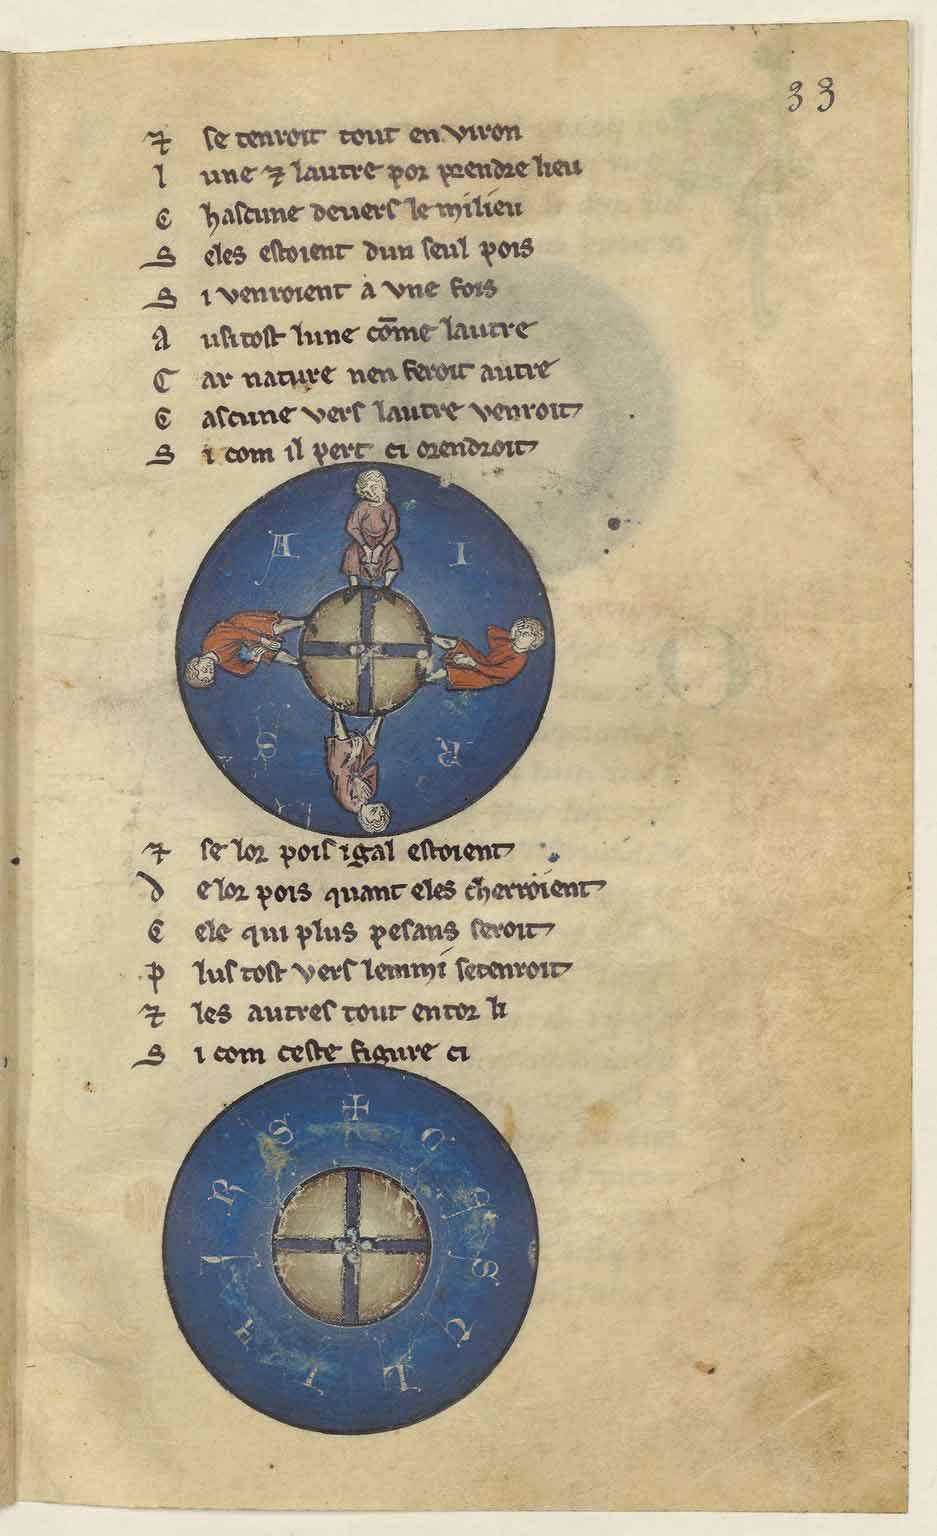 33
⁊ se tenroit tout en viron
l une ⁊ lautre por prendre lieu
C hascune deuers le milieu
S eles estoient dun seul pois
S i venroient a vne fois
A usitost lune cõme lautre
C ar nature nen feroit autre
C ascune vers lautre venroit
S i com il pert ci orendroit
A I R S
⁊ se lor pois igal estoient
D e lor pois quant eles cherroient
C ele qui plus pesans seroit
P lus tost vers lemmi se tenroit
⁊ les autres tout entor li
S i com ceste figure ci